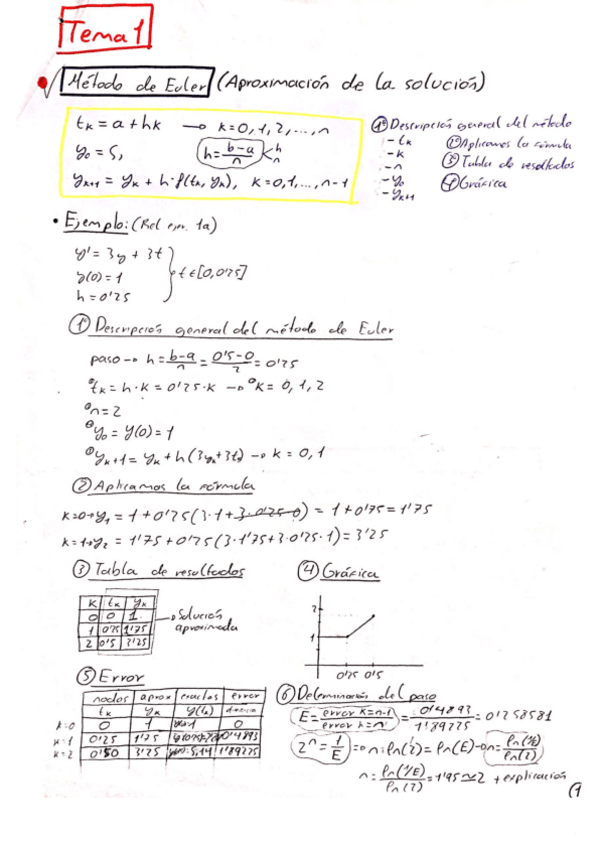 Tema 1
Método de Euler (Aproximación de la solución)
tk = a + hk → k = 0, 1, 2, ..., n
y0 = S, h = b-a/n
yk+1 = yk + h·f(tk, yk), k = 0, 1, ..., n-1
1º Descripción general del método
- tk
- k
- n
- y0
- yk+1
2º Aplicamos la fórmula
3º Tabla de resultados
4º Gráfica
• Ejemplo: (Rel ejer. 1a)
y' = 3y + 3t
y(0) = 1
h = 0'25
t ∈ [0, 0'5]
1º Descripción general del método de Euler
paso → h = b-a/n = 0'5-0/2 = 0'25
tk = h·k = 0'25·k → k = 0, 1, 2
n = 2
y0 = y(0) = 1
yk+1 = yk + h(3yk + 3tk) → k = 0, 1
2 Aplicamos la fórmula
k=0→ y1 = 1 + 0'25(3·1 + 3·0'25·0) = 1 + 0'75 = 1'75
k=1→ y2 = 1'75 + 0'25(3·1'75 + 3·0'25·1) = 3'25
3 Tabla de resultados
k tk yk
0 0 1
1 0'25 1'75
2 0'5 3'25
→ Solución aproximada
4 Gráfica
2
1
0'25 0'5
5 Error
nodos aprox exactos error
tk yk y(tk)
k=0 0 1 1 0
k=1 0'25 1'75 0'4893
k=2 0'50 3'25 5,14 1'89225
6 Determinación del paso
E = error k=n-1 / error k=n = 0'4893/1'89225 = 0'258581
2^n = 1/E ⇒ n·ln(2) = ln(1/E) → n = ln(1/E)/ln(2)
n = ln(1/E)/ln(2) = 1'95 ≃ 2 + explicación
(1